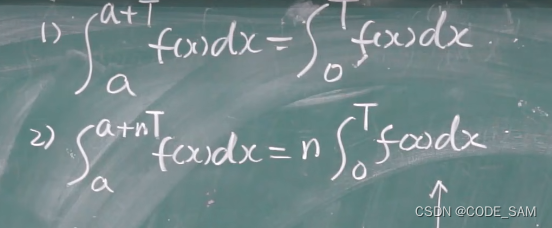 1) ∫_a^{a+T} f(x)dx = ∫_0^T f(x)dx.
2) ∫_a^{a+nT} f(x)dx = n ∫_0^T f(x)dx
↑
CSDN @CODE_SAM